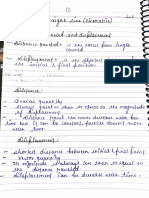 straight line (Kinematics)
travelled and displacement
distance travelled = is the total path length
covered
displacement = is the shortest
the initial & final position
distance:
scalar quantity
always greater than or equal to the magnitude
of displacement
distance
time but if can be constant, particle doesn't move
with time.
displacement:
shortest distance between initial & final point
vector quantity
its magnitude is always less than or equal to
the distance travelled
displacement can be decrease with time.